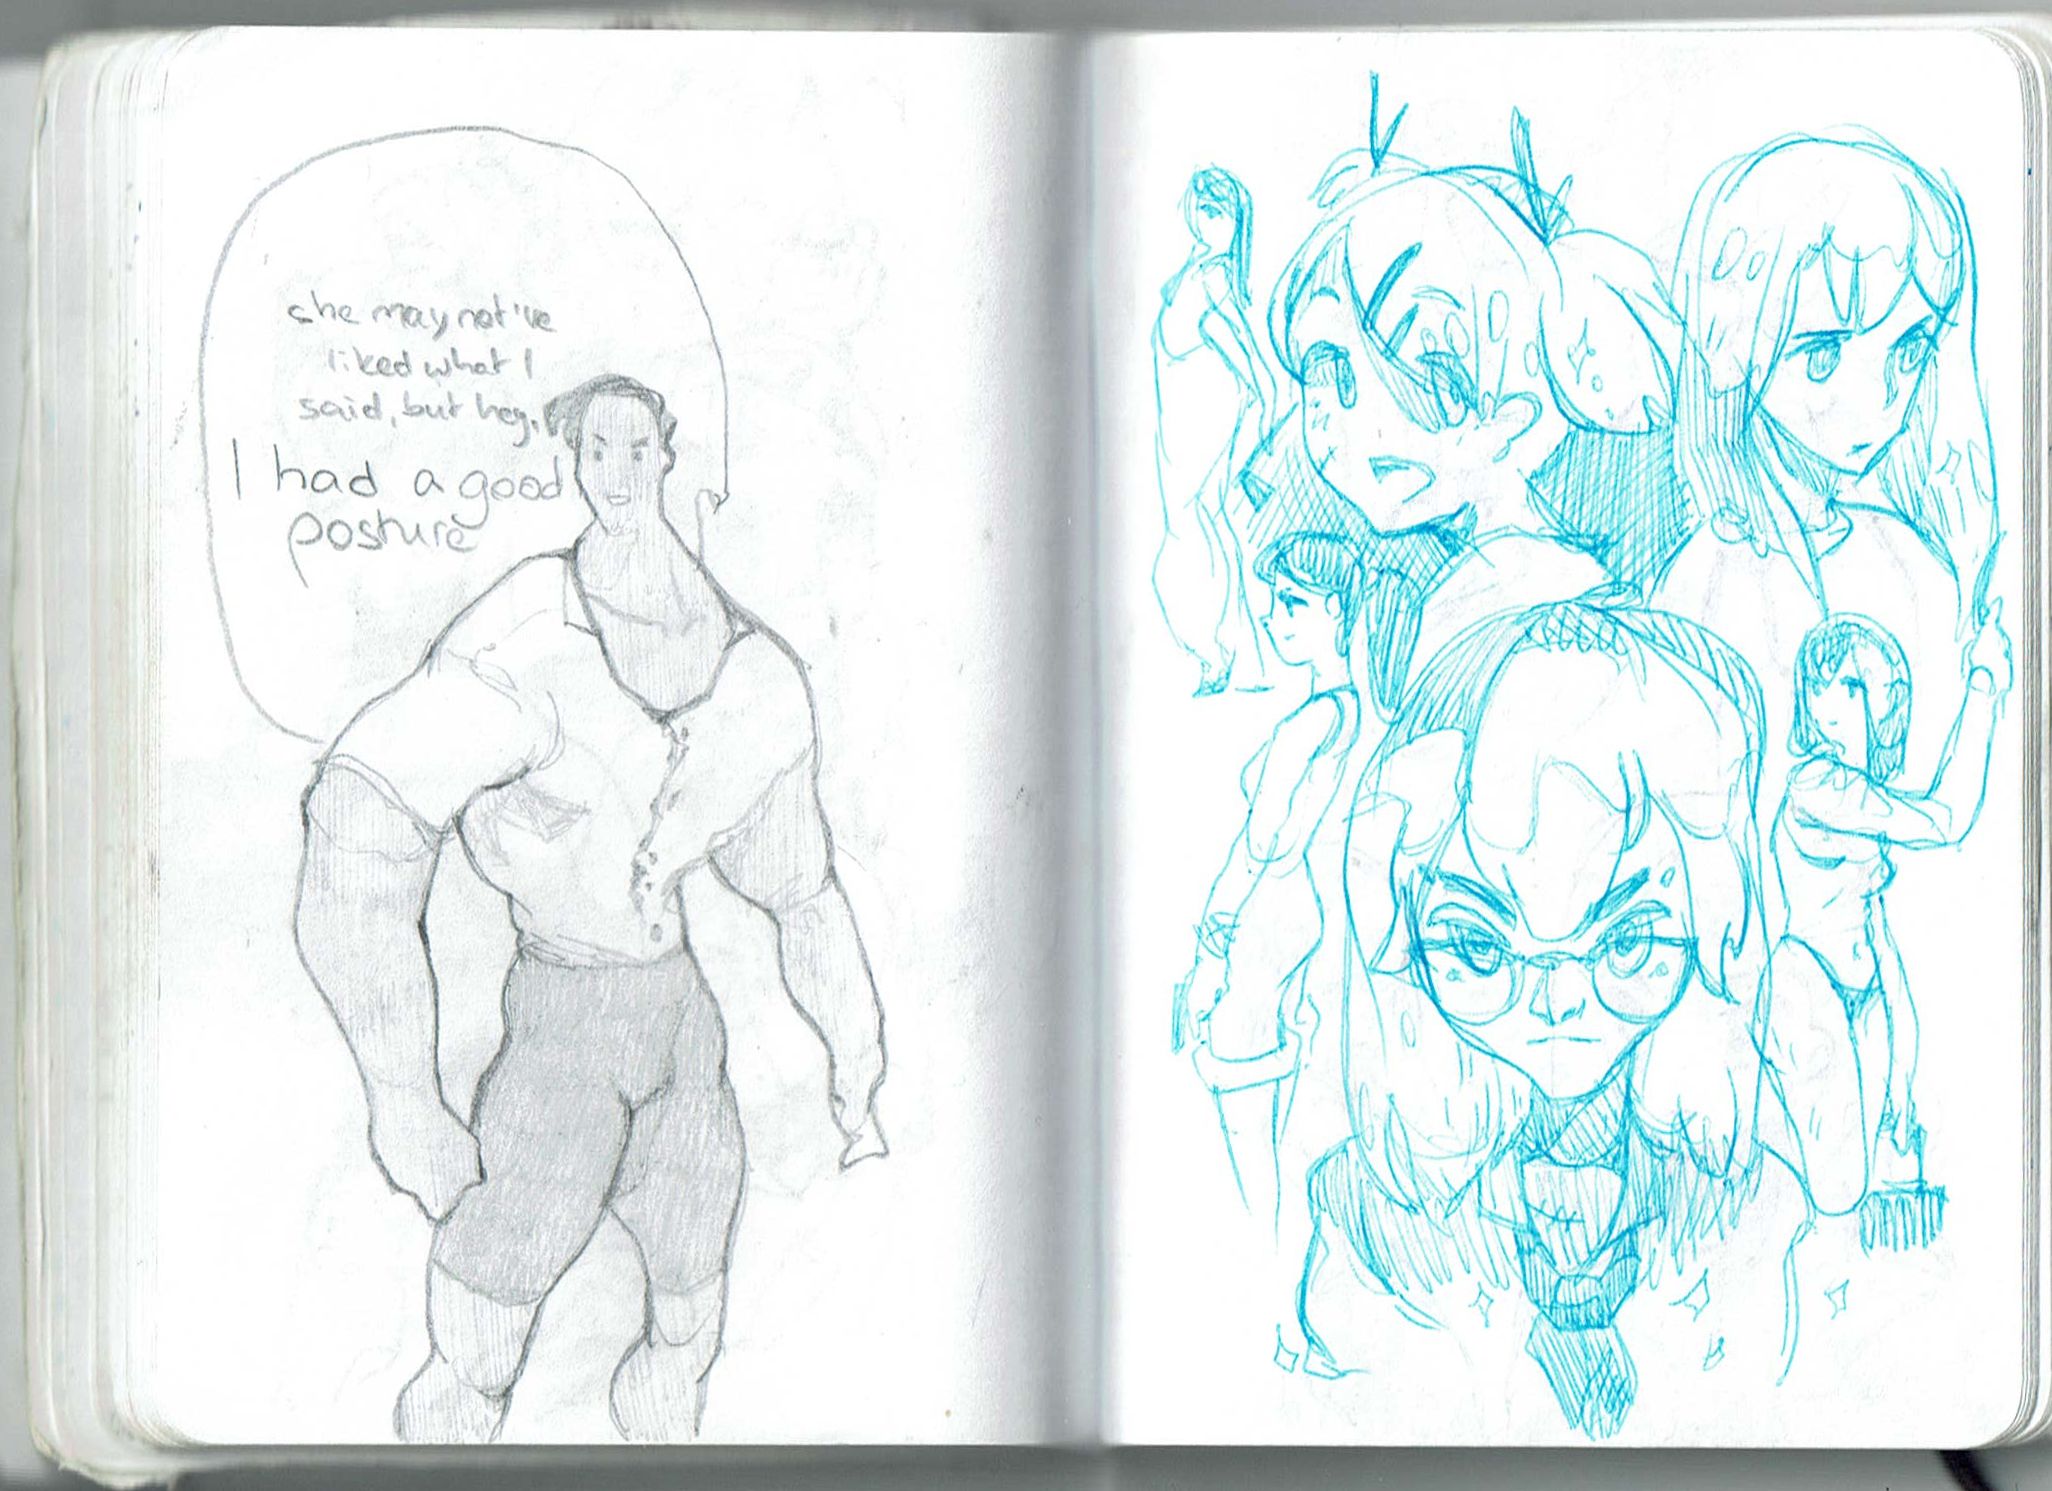 she may not've
liked what I
said, but hey,
I had a good
posture